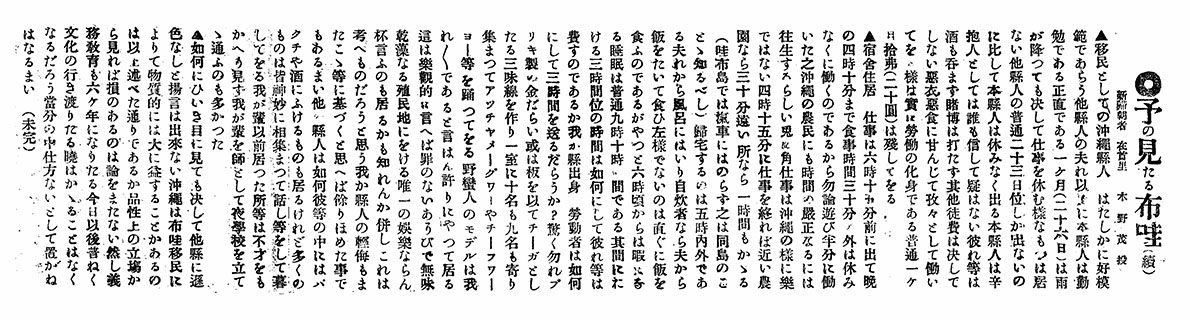 ◎予の見たる布哇（續）
新歸朝者 夜管里 木野 茂 投
▲移民としての沖繩縣人 はたしかに好模
範であらう他縣人の夫れ以上に本縣人は勤
勉である正直である一ヶ月（二十六日）は雨
が降つても决して仕事を休む樣なものは居
ない他縣人の普通二十三日位しか出ないの
に比して本縣人は休みなく出る本縣人は辛
抱人としては誰も信して疑はない彼れ等は
酒も呑ます賭博は打たす其他徒費は决して
しない惡衣惡食に甘んじて孜々として働い
てをる樣は實に勞働の化身である普通一ヶ
月拾弗（二十圓）は殘してをる
▲宿舍住居 仕事は六時十五分前に出て晩
の四時十分まで食事時間三十分の外は休み
なくに働くのであるから勿論遊び半分に働
いた之沖繩の農民にも時間の嚴正なるには
往生するらしい兎に角仕事は沖繩の樣に樂
ではない四時十五分に仕事を終れば近い農
園なら三十分遠い所なら一時間もかゝる
（哇布島では滊車にはのらす之は同島のこ
とゝ知るべし）歸宅するのは五時内外であ
る夫れから風呂にはいり自炊者なら夫から
飯をたいて食ひ左樣でないのは直ぐに飯を
食ふのであるがやつと六時頃からは暇になる
る睡眠は普通九時十時の間である其間にお
ける三時間位の時間は如何にして彼れ等は
費すのであるか我か縣出身の勞働者は如何
にして三時間を送るだらうか？驚く勿れブ
リキ製の金だらい或は板を以てチーガとし
たる三味線を作り一室に十名も九名も寄り
集まつてアツチヤメーグワーやチーフワー
ヨー等を踊つてをる野蠻人のモデルは我
れであると言は許りにやつて居る
這は樂觀的に言へば罪のないあうびで無味
乾燥なる殖民地にをける唯一の娯樂ならん
杯言ふのも居るかも知れん併し これは
考へものだろうと思う我か縣人の輕侮もま
たこゝ等に基づくと思へば餘りほめた事で
もあるまい他の縣人は如何彼等の中にはバ
クチや酒にふけるものも居るけれど多くの
ものは皆神妙に相集まつて話し等をして暮
してをる我が輩以前居つた所等は不才をも
かへり見す我が輩を師として夜學校を立て
ゝ通ふのも多かつた
▲如何にひいき目に見ても决して他縣に遜
色なしと揚言は出來ない沖繩は布哇移民に
よりて物質的には大に益することかあるの
は以上述べた通りであるか品性上の立塲か
ら見れば損のあるのは論をまたない然し義
務敎育も六ヶ年になりたる今日以後普ねく
文化の行き渡りたる曉はかゝることはなく
なるだろう當分の中仕方ないとして置かね
はなるまい （未完）